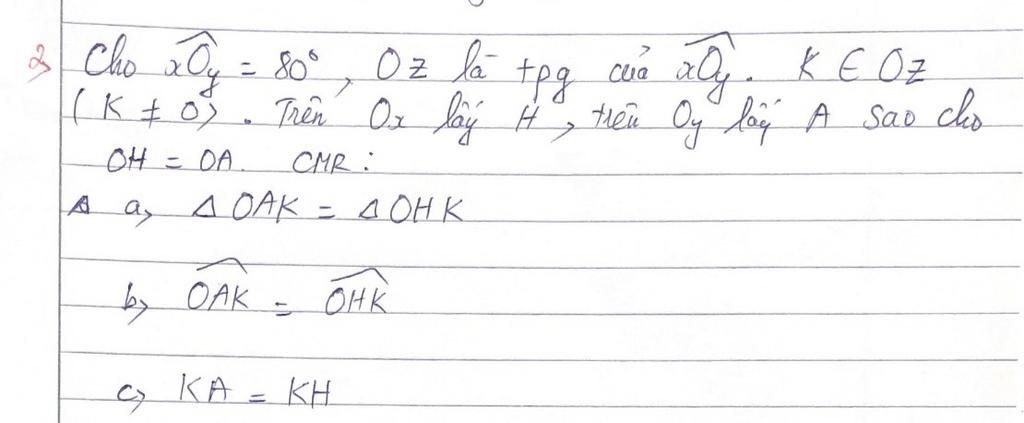 2, Cho xOy = 80°, Oz là tpg của xOy. K ∈ Oz
(K ≠ O). Trên Ox lấy H, trên Oy lấy A sao cho
OH = OA. CMR:
a, Δ OAK = Δ OHK
b, OAK = OHK
c, KA = KH